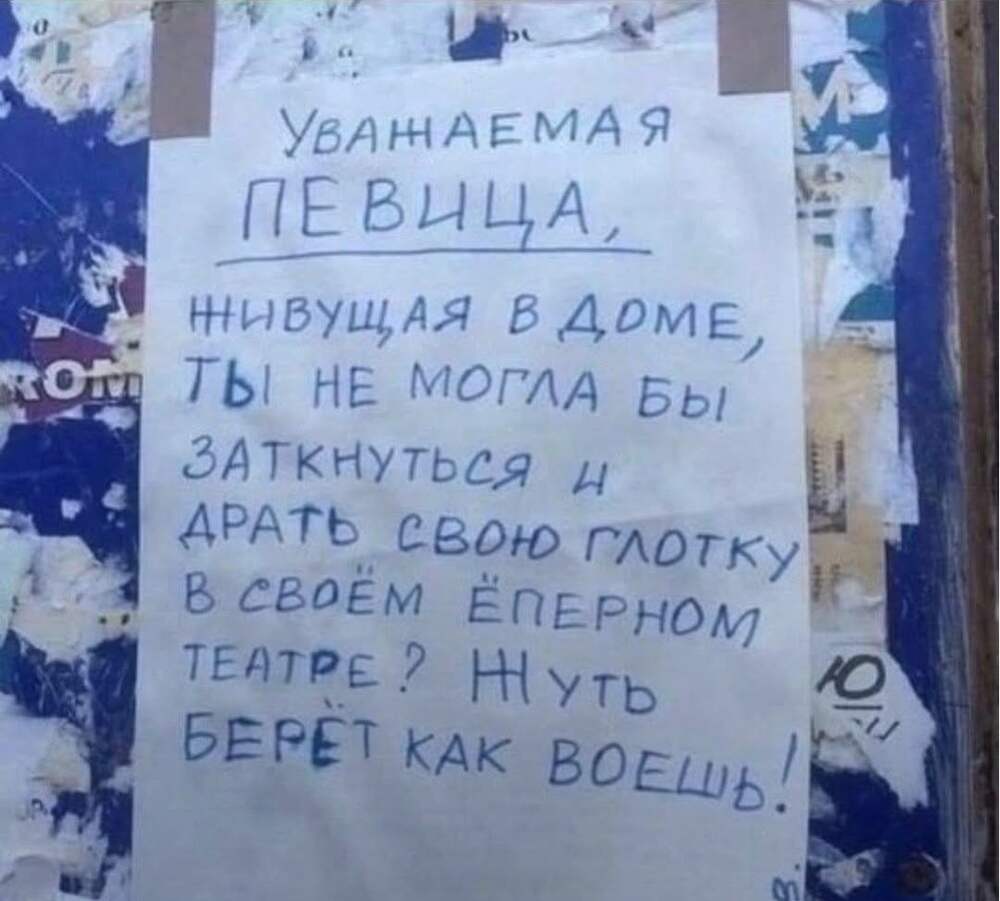 УВАЖАЕМАЯ
ПЕВИЦА,
ЖИВУЩАЯ В ДОМЕ,
ТЫ НЕ МОГЛА БЫ
ЗАТКНУТЬСЯ И
ДРАТЬ СВОЮ ГЛОТКУ
В СВОЁМ ЁПЕРНОМ
ТЕАТРЕ? ЖУТЬ
БЕРЁТ КАК ВОЕШЬ!
Ю